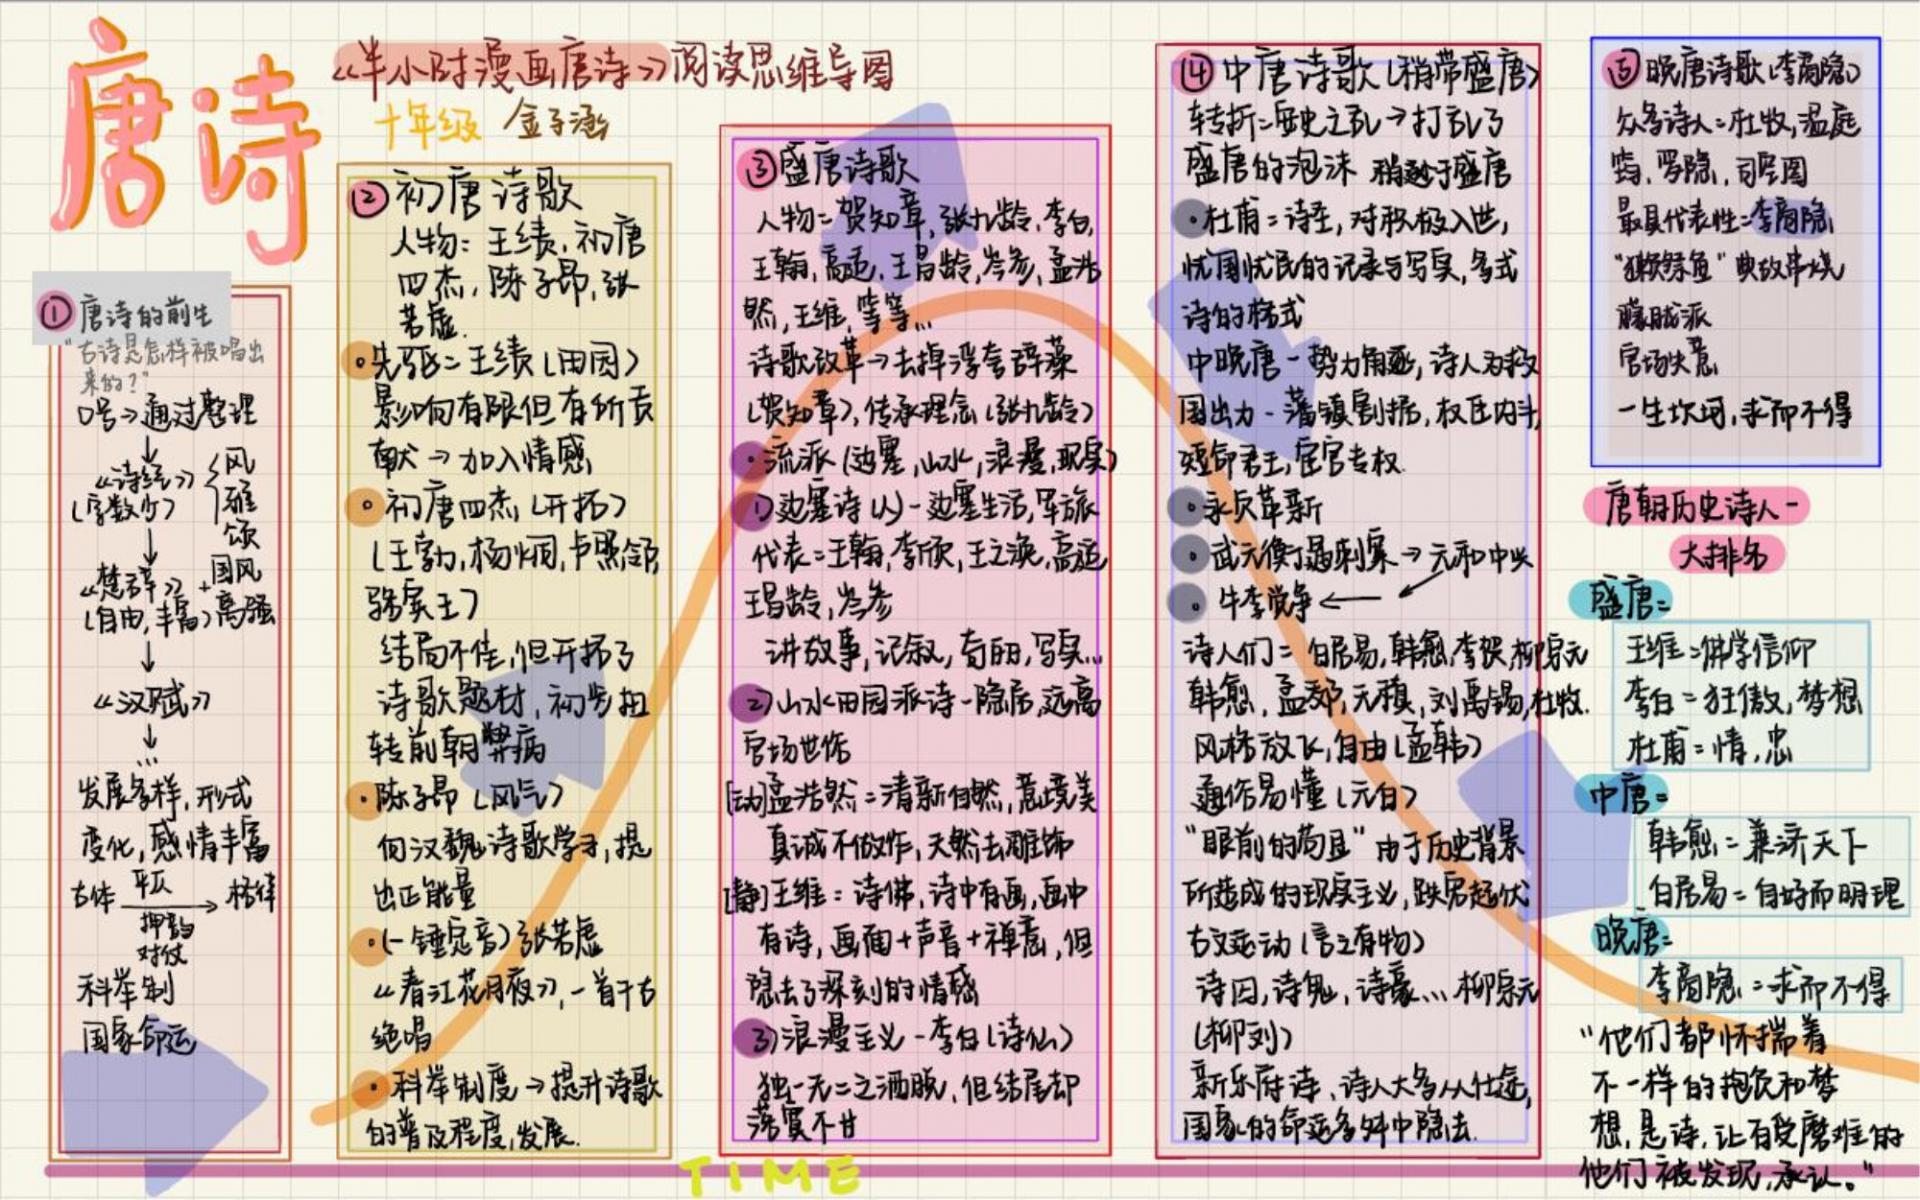 唐诗
《半小时漫画唐诗》阅读思维导图
十年级 金子涵
① 唐诗的前生
"古诗是怎样被唱出
来的?"
口号→通过整理
↓
《诗经》{风
(字数少) 雅
颂
↓
《楚辞》+国风
(自由,丰富)离骚
↓
《汉赋》
↓
...
发展多样,形式
变化,感情丰富
古体 平仄 → 格律
押韵
对仗
科举制
国家命运
② 初唐诗歌
人物: 王绩,初唐
四杰,陈子昂,张
若虚.
·先驱=王绩(田园)
影响有限但有所贡
献→加入情感
·初唐四杰(开拓)
(王勃,杨炯,卢照邻,
骆宾王)
结局不佳,但开拓了
诗歌题材,初步扭
转前朝弊病
·陈子昂(风气)
向汉魏诗歌学习,提
出正能量
·(一锤定音)张若虚
《春江花月夜》,一首千古
绝唱
·科举制度→提升诗歌
的普及程度,发展.
③盛唐诗歌
人物=贺知章,张九龄,李白,
王翰,高适,王昌龄,岑参,孟浩
然,王维,等等...
诗歌改革→去掉浮夸辞藻
(贺知章),传承理念(张九龄)
·流派(边塞,山水,浪漫,现实)
1)边塞诗(人)-边塞生活,军旅
代表=王翰,李颀,王之涣,高适
王昌龄,岑参
讲故事,记叙,写实...
2)山水田园派诗-隐居,远离
官场世俗
[动]孟浩然=清新自然,意境美
真诚不做作,天然去雕饰
[静]王维:诗佛,诗中有画,画中
有诗,画面+声音+禅意,但
隐去了深刻的情感
3)浪漫主义-李白(诗仙)
独一无二之洒脱,但结尾却
落寞不甘
④中唐诗歌(稍带盛唐)
转折=安史之乱→打乱了
盛唐的泡沫 稍逊于盛唐
·杜甫=诗圣,对积极入世,
忧国忧民的记录与写实,多式
诗的格式
中晚唐-势力角逐,诗人为救
国出力-藩镇割据,权臣内斗,
短命君王,宦官专权.
·永贞革新
·武元衡遇刺案→元和中兴
·牛李党争←
诗人们=白居易,韩愈,李贺,柳宗元
韩愈,孟郊,元稹,刘禹锡,杜牧.
风格放飞,自由(孟韩)
通俗易懂(元白)
"眼前的苟且"由于历史背景
所造成的现实主义,跌宕起伏
古文运动(言之有物)
诗囚,诗鬼,诗豪...柳宗元
(柳刘)
新乐府诗,诗人大多从仕途,
国家的命运多舛中隐去.
⑤晚唐诗歌(李商隐)
众多诗人=杜牧,温庭
筠,罗隐,司空图
最具代表性=李商隐
"獭祭鱼"典故串烧
朦胧派
官场失意
一生坎坷,求而不得
唐朝历史诗人一
大排名
盛唐=
王维=佛学信仰
李白=狂傲,梦想
杜甫=情,忠
中唐=
韩愈=兼济天下
白居易=自好而明理
晚唐=
李商隐=求而不得
"他们都怀揣着
不一样的抱负和梦
想,是诗,让百受磨难的
他们被发现,承认。"
TIME